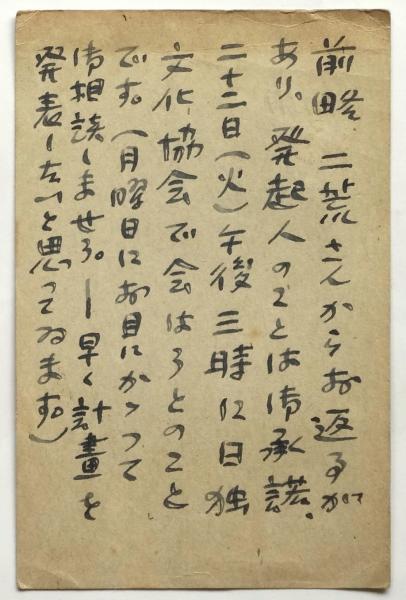 前略 二荒さんからお返事が
あり。発起人のことは御承諾。
二十二日(火)午後三時に日独
文化協会で会はうとのこと
です。(月曜日にお目にかゝつて
御相談しませう。―早く計畫を
発表したいと思つてゐます)